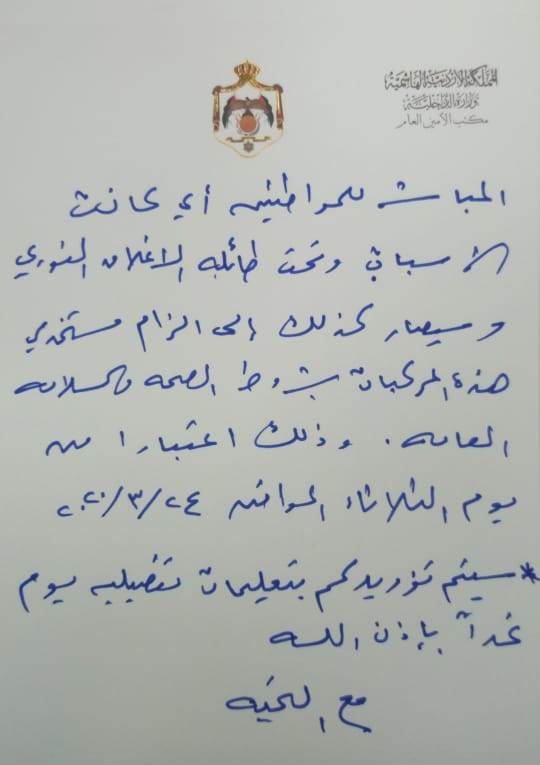 المملكة الأردنية الهاشمية
وزارة الداخلية
مكتب الأمين العام
المباشر للمواطنين أي كانت
الأسباب وتحت طائلة الإغلاق الفوري
وسيصار كذلك إلى الزام مستخدمي
هذه المركبات بشروط الصحه والسلامه
العامه . وذلك اعتبارا من
يوم الثلاثاء الموافق ٢٠٢٠/٣/٢٤
* سيتم تزويدكم بتعليمات تفصيليه يوم
غداً بإذن الله
مع التحيه